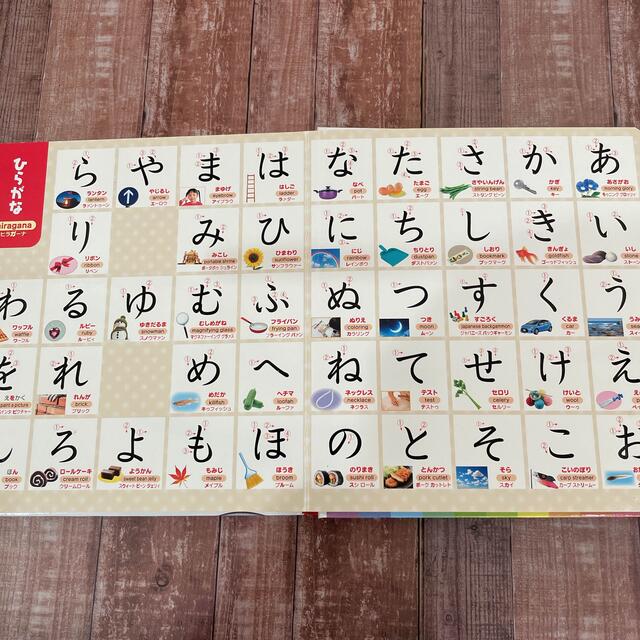 ひらがな
hiragana
ヒラガーナ
あ
あさがお
morning glory
か
かぎ
key
キー
さ
さやいんげん
string bean
ストリング ビーン
た
たまご
egg
エーグ
な
なべ
pot
パート
い
いし
stone
き
きんぎょ
goldfish
ゴールドフィッシュ
し
しおり
bookmark
ブックマーク
ち
ちりとり
dustpan
ダストパァン
に
にじ
rainbow
レインボウ
う
うみ
く
くるま
car
カー
す
すごろく
Japanese backgammon
つ
つき
moon
ムーン
ぬ
ぬりえ
coloring
カラリング
え
け
けいと
wool
ウーゥ
せ
セロリ
celery
セルリー
て
テスト
test
ね
ネックレス
necklace
ネクラス
お
こ
こいのぼり
carp streamer
カープ ストリーマー
そ
そら
sky
スカイ
と
とんかつ
pork cutlet
ポーク カットレト
の
のりまき
sushi roll
スシ ロール
は
はしご
ladder
ラァダー
ま
まゆげ
eyebrow
アイブラウ
や
やじるし
arrow
エーロウ
ら
ランタン
lantern
ラァントゥーン
ひ
ひまわり
sunflower
サンフラウァー
み
みこし
portable shrine
り
リボン
ribbon
リベン
ふ
フライパン
frying pan
フライング パァン
む
むしめがね
magnifying glass
ゆ
ゆきだるま
snowman
スノウマァン
る
ルビー
ruby
ルービィ
わ
ワッフル
waffle
ワーフル
へ
ヘチマ
loofah
ルーファ
め
めだか
killifish
キッフィッシュ
れ
れんが
brick
ブリック
を
えをかく
paint a picture
ほ
ほうき
broom
ブルーム
も
もみじ
maple
メイプル
よ
ようかん
sweet bean jelly
スウィート ビーン ジェリィ
ろ
ロールケーキ
cream roll
クリームロール
ん
ほん
book
ブック